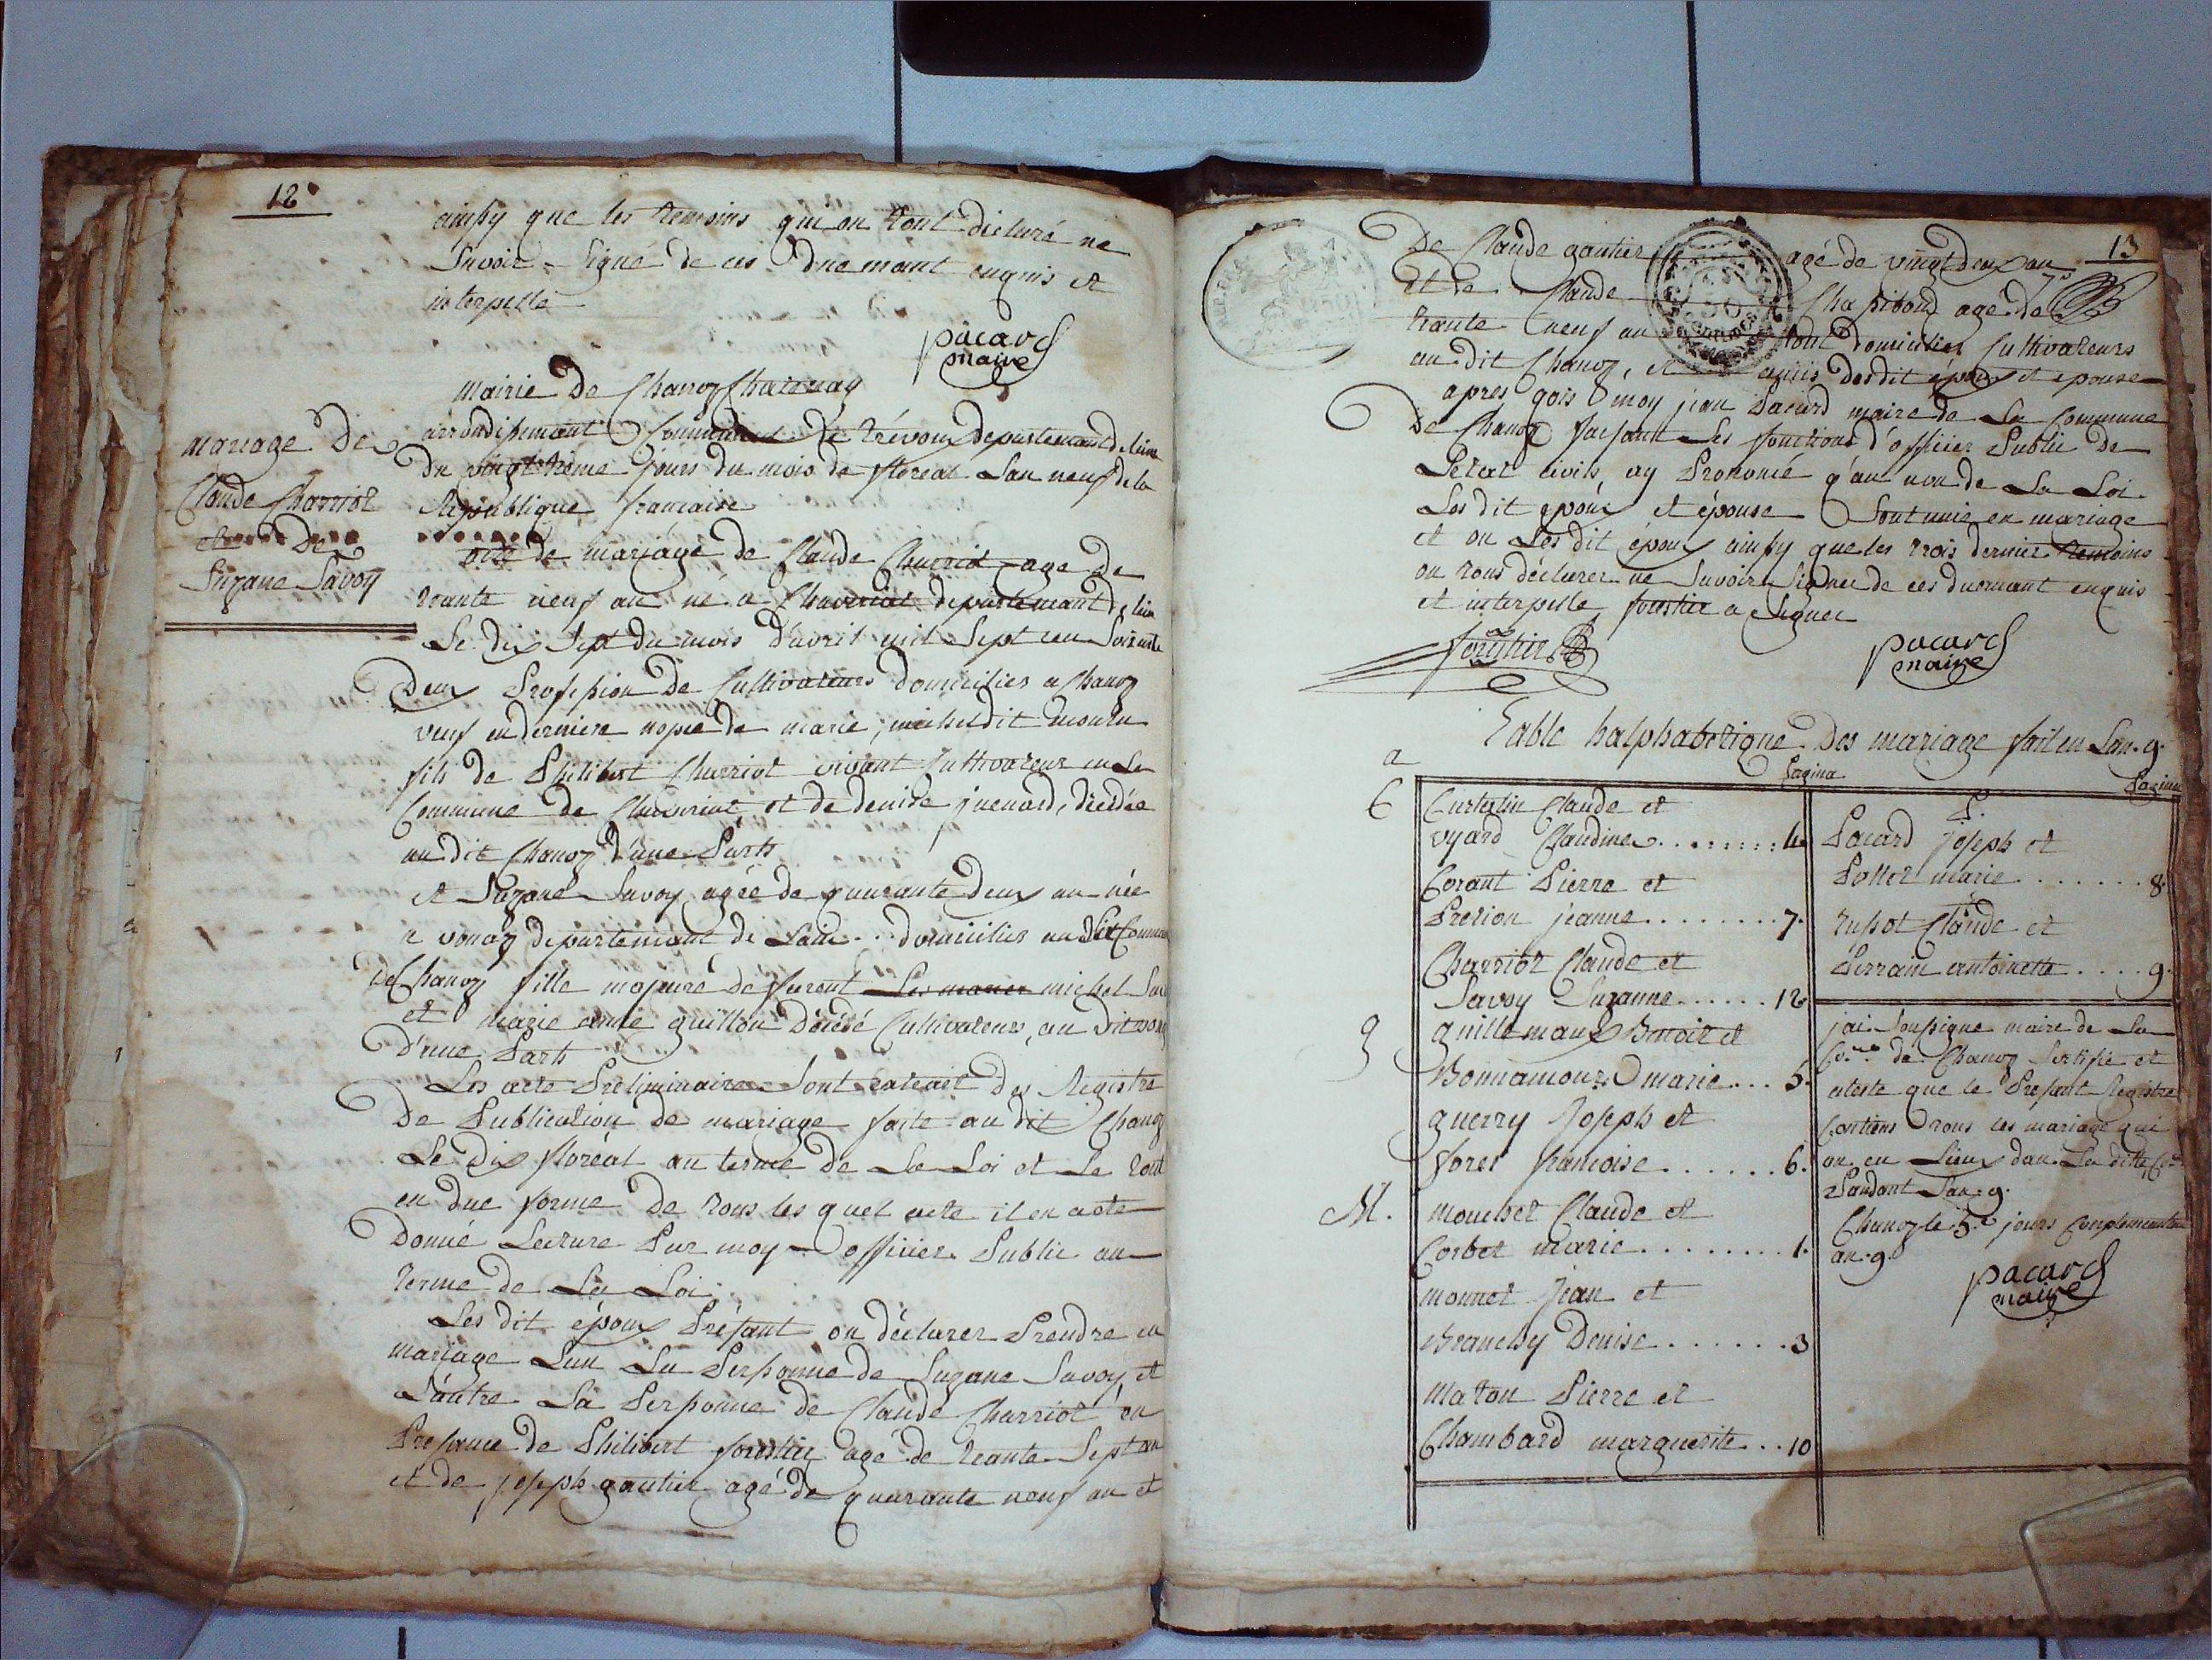 12
ainssy que les temoins qui on tout déclaré ne
Savoir Signé de ces duemant enquis et
interpellé
pacard
maire
mairie De Chanoz Chatenay
arrondissemant Communal de trévoux departemant de lain
Du vingt jours du mois de floreal Lan neuf de la
Republique francaise
mariage De
Claude Charriot
et De
Suzane Savoy
acte de mariage de Claude Charriot age de
trante neuf an né a departemant de lain
Le dix Sept du mois d'avril mil Sept cen Soixante
Deux Profession de Cultivateurs domicilies a Chanoz
veuf en derniere nopce de marie michel dit
fils de Philibert Charriot vivant Cultivateur en La
Commune de et de denise juenard, décédée
au dit Chanoz d'une Parts
et Suzane Savoy agée de quarante deux an née
a vonaz departemant de Lain domicilies au dit Commune
de Chanoz fille majeure de furent michel Savoy
et marie anne guillon décédé Cultivateurs, au dit vonaz
D'une Parts
Les acte Preliminaires Sont extrait des Registre
De Publication de mariage faite au dit Chanoz
Le Dix floréal au terme de La Loi et Le tout
en due forme de tous les quel acte il en acte
Donné Lecture Par moy officier Public au
terme de La Loi
Les dit époux Présant on déclarer Prendre en
mariage Lun La Perssonne de Suzane Savoy et
L'autre La Perssonne de Claude Charriot en
Presance de Philibert forestier agé de trante Sept an
et de joseph gautier agé de quarante neuf an et
13
De Claude gautier agé de vingt deux an
et de Claude Chapibond age de
trante neuf an tout domicilies Cultivateurs
au dit Chanoz, et amis des dit époux et epouse
apres qois moy jean Pacard maire de La Commune
De Chanoz faisant Les fonctions d'officier Public de
Letat civils ay Prononcé q'au non de La Loi
Les dit époux et épouse Sont unis en mariage
et on Les dit époux ainssy que les trois dernier temoins
on tous déclarer ne Savoir Signer de ces duemant enquis
et interpelle forestier a Signer
forestier
pacard
maire
Table halphabetique Des mariage fait en Lan. 9.
a
Pagina
Pagina
C
Curtelin Claude et
vyard Claudine 4
Corant Pierre et
Pretion jeanne 7.
Charriot Claude et
Savoy Suzanne 12
g
guillemaux Benoit et
Bonnamour marie 5.
guerry Joseph et
foret francoise 6.
M.
mouchet Claude et
Corbet marie 1.
monnet jean et
Branchy Denise 3
Maton Pierre et
Chambard marguerite 10
P.
Pacard joseph et
Pottet marie 8
Claude et
Perrain antoinette 9.
jai Soussigne maire de La
Co.ne de Chanoz Sertifie et
ateste que le Presant Registre
Contiens tous les mariage qui
on eu Lieux dan La ditte Co.ne
Pandant Lan. 9.
Chanoz le 5.e jours Complementaire
an. 9.
pacard
maire